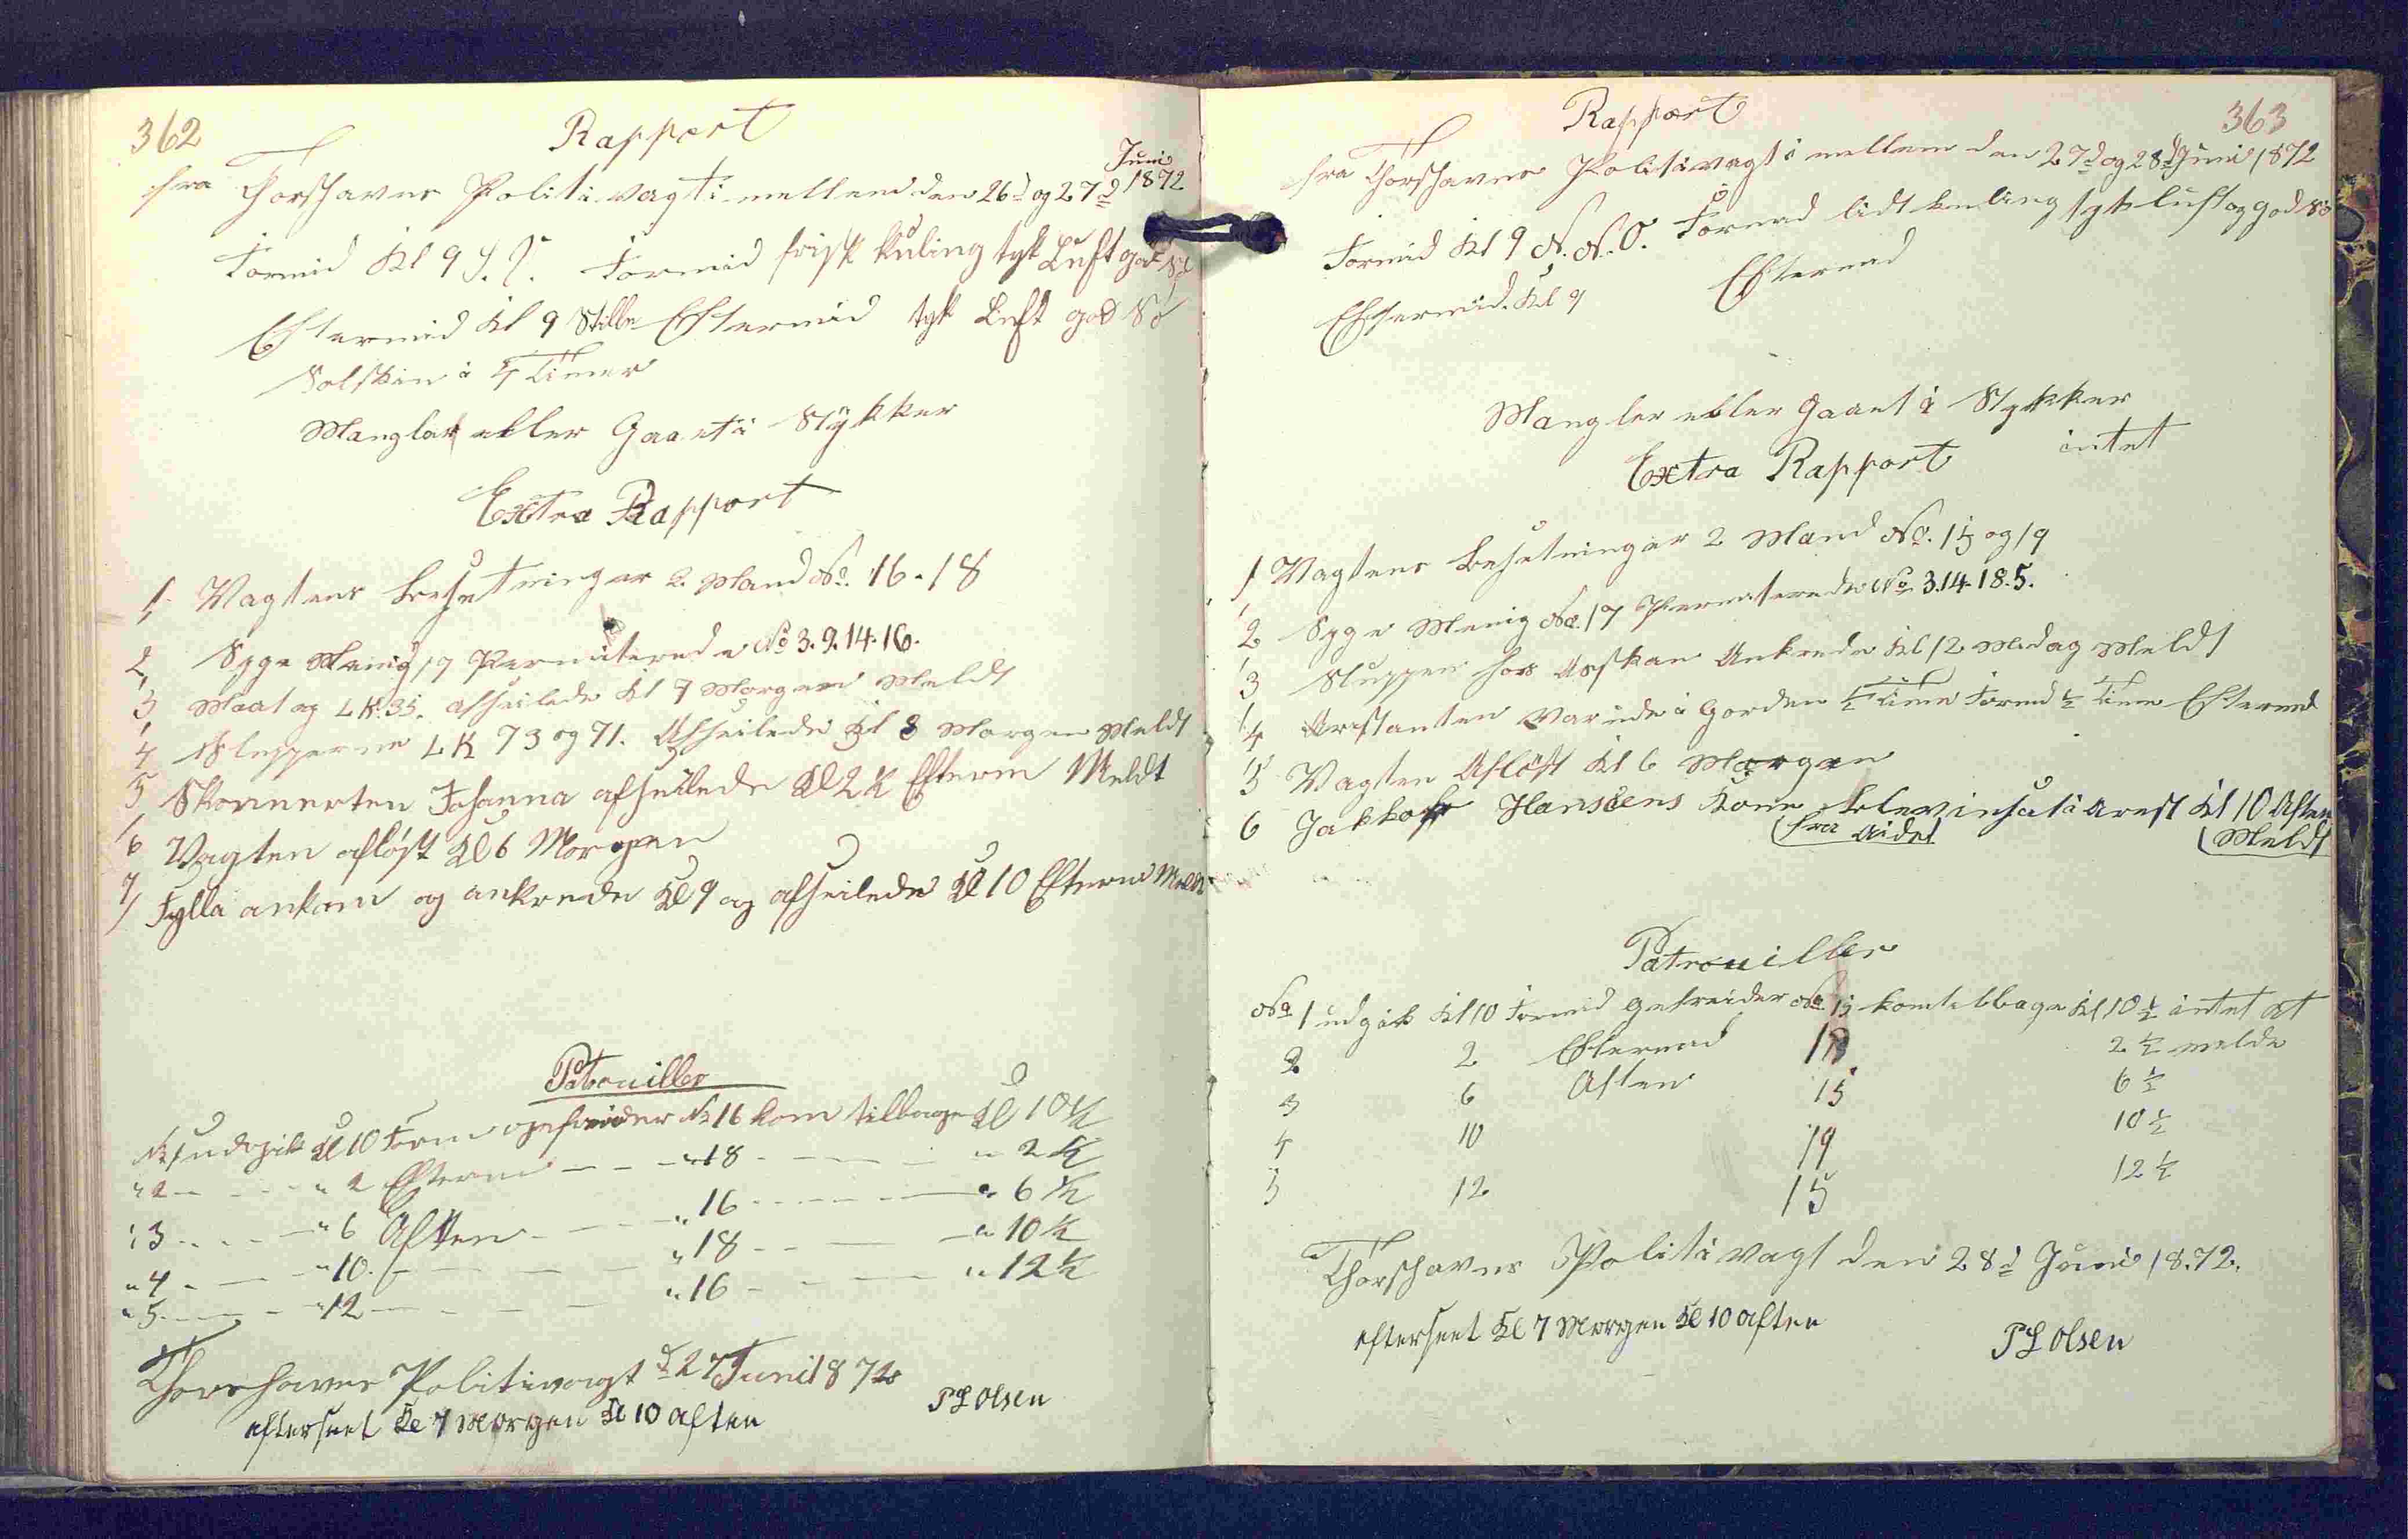 362
Rapport
fra Thorshavns Politivagt i mellem den 26d og 27d Juni 1872
Formid Kl 9 S.V. Formid frisk kuling tyk Luft god Sö
Eftermid Kl 9 Stille Eftermid tyk Luft god Sö
Solskin i 4 Timer
Mangler eller Gaaet i Stykker
Extra Rapport
1, Vagtens Besetning er 2 Mand No. 16-18
2, Syge Menig 17 Permiterede No 3.9.14.16.
3, LK.35. afseilede Kl 7 Morgen Meldt
4 Slupperne LK 73 og 71. Afseilede Kl 8 Morgen Meldt
5 Skonnerten Johanna afseilede Kl 2½ Efterm Meldt
6 Vagten aflöst Kl 6 Morgen
7, Fylla ankom og ankrede Kl 9 og afseilede Kl 10 Efterm Meldt
Patrouiller
No 1 udgik Kl 10 Form gefreider No 16 kom tilbage Kl 10½
" 2 - - - " 2 Efterm - - " 18 - - - " 2½
" 3 - - - " 6 Aften - - " 16 - - - " 6½
" 4 - - - " 10 - - - " 18 - - - " 10½
" 5 - - - " 12 - - - " 16 - - - " 12½
Thorshavns Politivagt d 27 Juni 1872
efterseet Kl 7 Morgen Kl 10 aften
PL Olsen
363
Rapport
fra Thorshavns Politivagt i mellem den 27d og 28d Juni 1872
Formid Kl 9 N.N.O. Formd lidt kuling tyk luft og god Sö
Eftermid. Kl 9 Eftermd
Mangler eller Gaaet i Stykker
intet
Extra Rapport
1 Vagtens Besetning er 2 Mand No. 15 og 19
2 Syge Menig No. 17 Permiterede No 3.14.18.5.
3 Sluppen Ankrede Kl 12 Medag Meldt
4 Arestanten var ude i Gorden ½ Time Formd ½ Time Eftermd
5 Vagten Aflöst Kl 6 Morgen
6 Jakkob Hansens Kone blev insat i Arest Kl 10 Aften
(fra Aidet
(Meldt
Patrouiller
No 1 udgik Kl 10 Formid gefreider No 15 kom tilbage Kl 10½ intet at
2 2 Eftermd 19 2½ melde
3 6 Aften 15 6½
4 10 19 10½
5 12 15 12½
Thorshavns Politivagt den 28d Juni 1872.
efterseet Kl 7 Morgen Kl 10 aften
PL Olsen